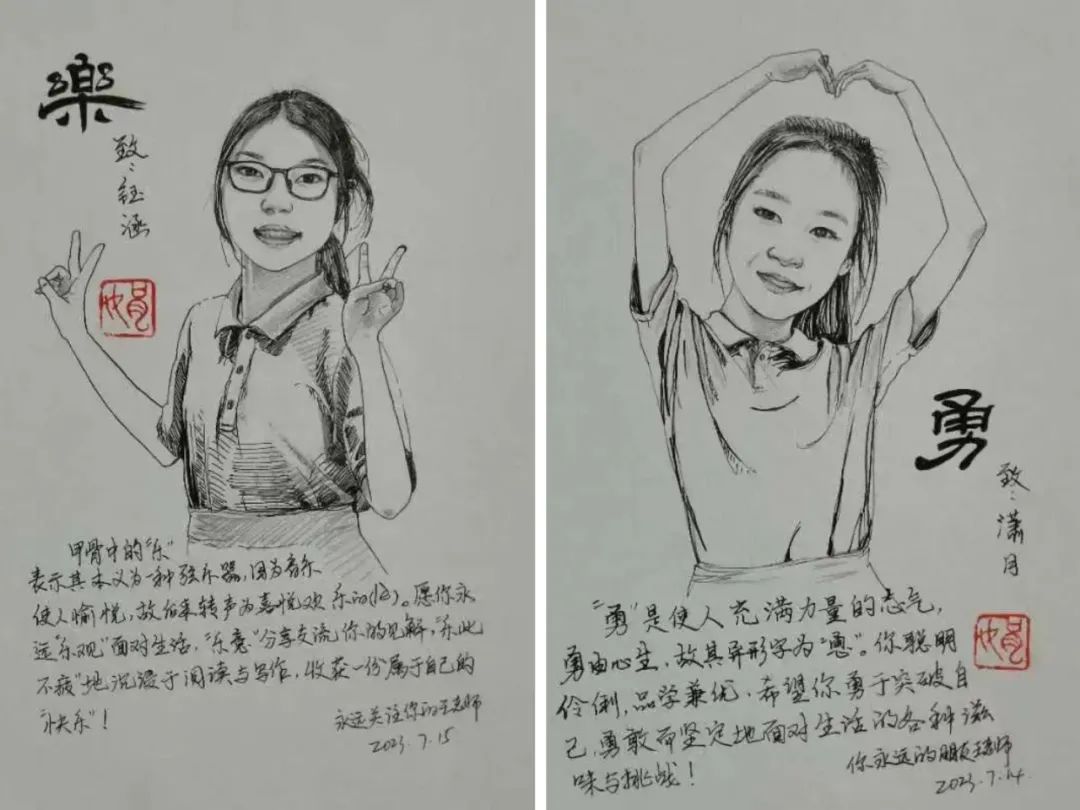 樂
致:钰涵
甲骨中的“乐”
表示其本义为一种弦乐器,因为音乐
使人愉悦,故后来转声为喜悦欢乐的(lè)。愿你永
远“乐观”面对生活,“乐意”分享交流你的见解,“乐此
不疲”地沉浸于阅读与写作,收获一份属于自己的
“快乐”!
永远关注你的王老师
2023.7.15
勇
致:潇月
“勇”是使人充满力量的态气,
勇由心生,故其异形字为“恿”。你聪明
伶俐,品学兼优,希望你勇于突破自
己,勇敢而坚定地面对生活的各种滋
味与挑战!
你永远的朋友王老师
2023.7.14.